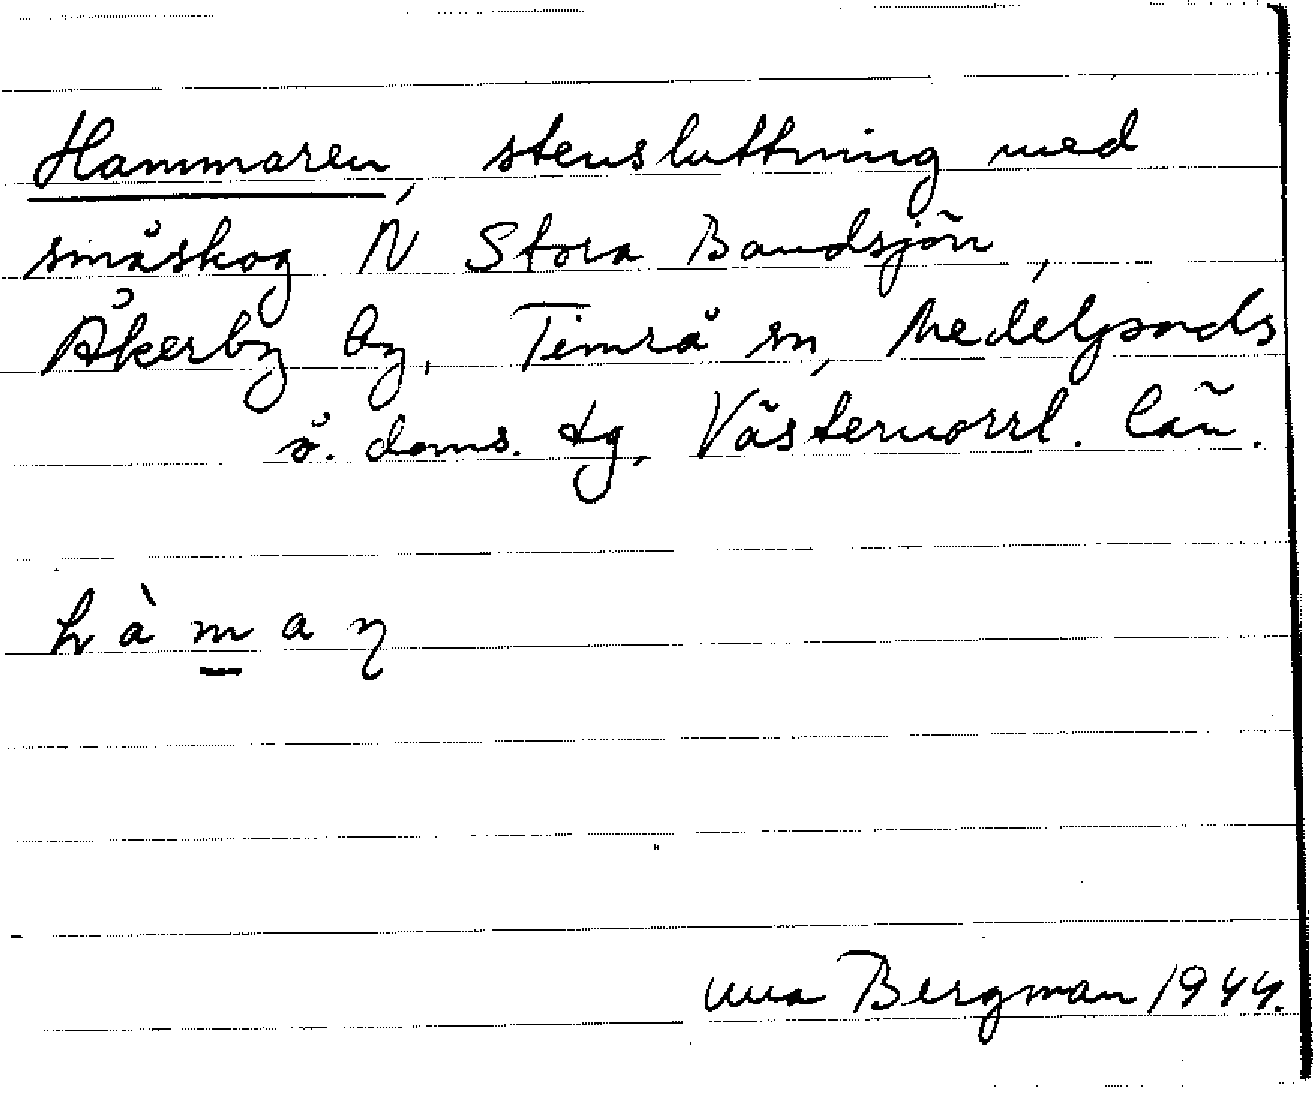 Hammaren, stensluttning med
småskog N Stora Bandsjön,
Åkerby by, Timrå sn, Medelpads
ö. doms. tg, Västernorrl. län.
h à m a η
Bergman 1944.